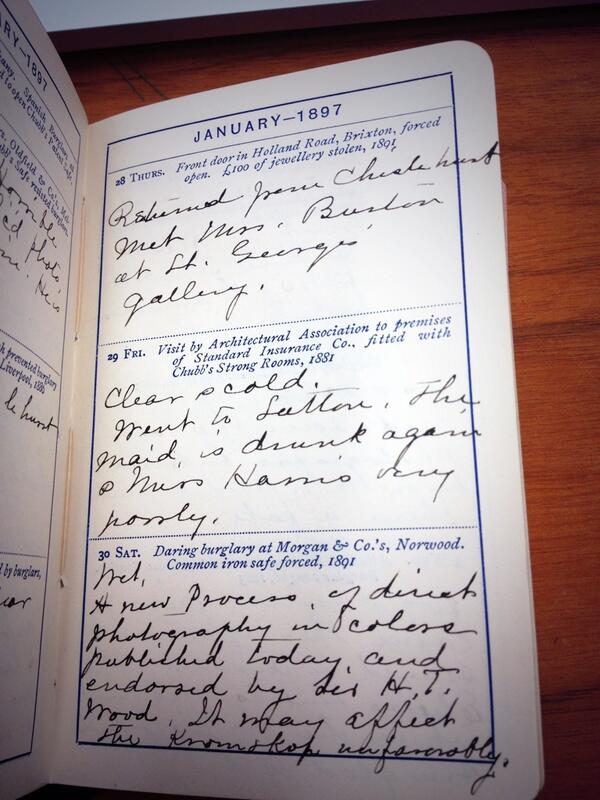 RY—1897
Spanish Burglars
to open Chubb's Patent Safe.
Oldfield & Co.'s,
Safe resisted burglars,
photo.
prevented burglary
Liverpool, 1880
le hurst
by burglars,
JANUARY—1897
28 THURS. Front door in Holland Road, Brixton, forced
open. £100 of jewellery stolen, 1891
Returned from Chislehurst
Met Mrs. Burton
at St. Georges
gallery.
29 FRI. Visit by Architectural Association to premises
of Standard Insurance Co., fitted with
Chubb's Strong Rooms, 1881
Clear & cold.
Went to Sutton. The
maid is drunk again
& Miss Harris very
poorly.
30 SAT. Daring burglary at Morgan & Co.'s, Norwood.
Common iron safe forced, 1891
Wet.
A new Process of direct
photography in colors
published today and
endorsed by Sir H. T.
Wood. It may affect
the Kromskop unfavorably.